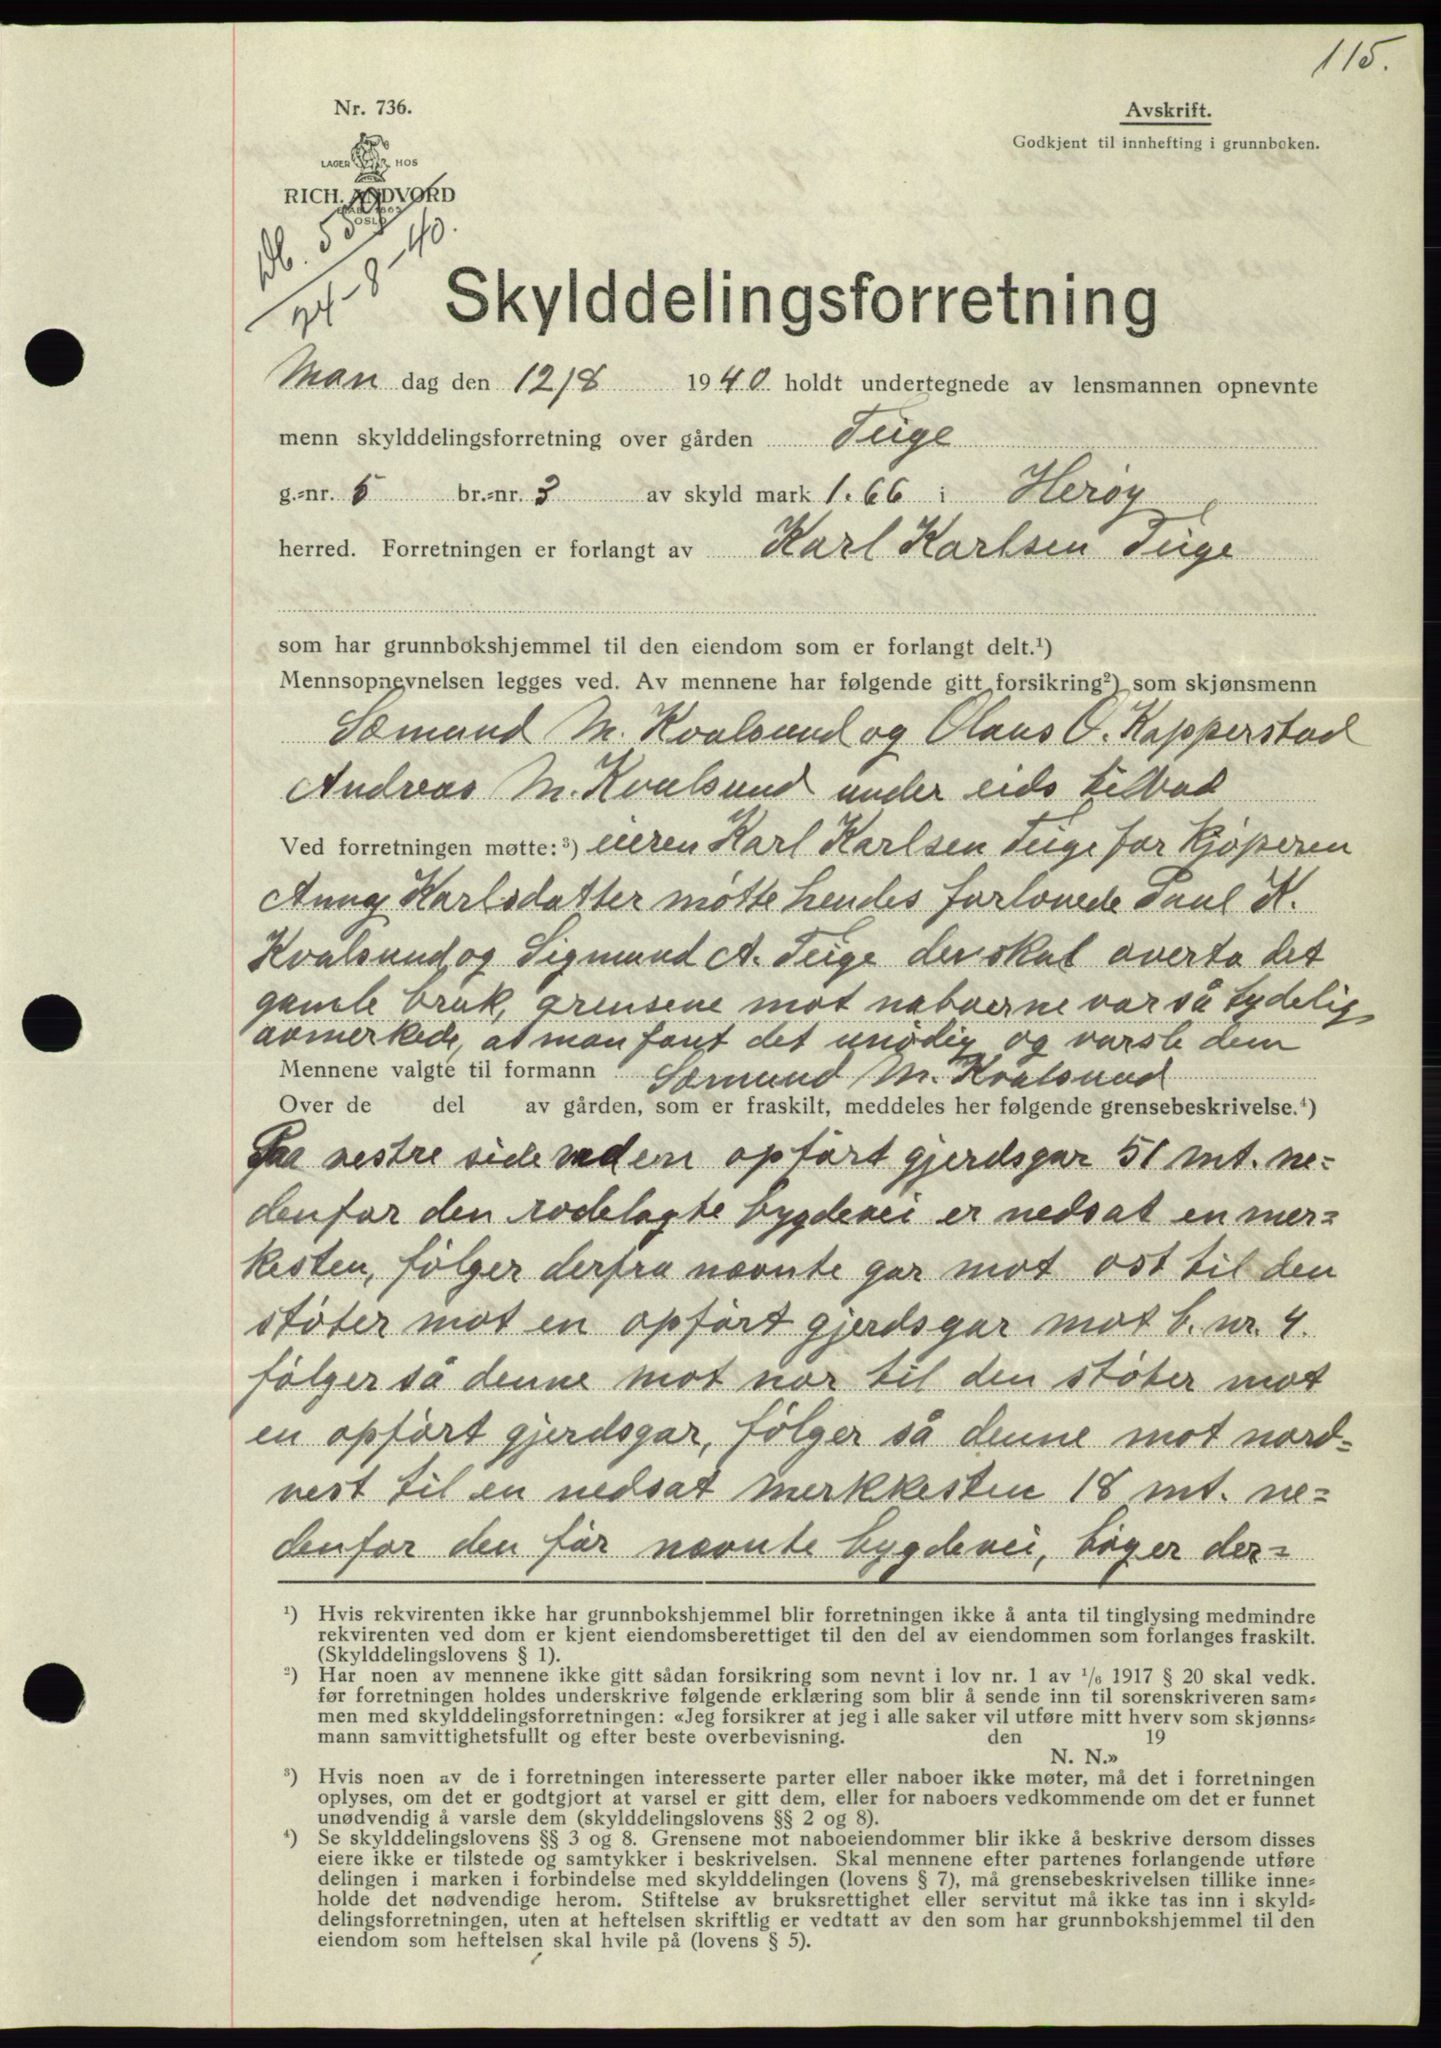 115.
Nr. 736.
Avskrift.
Godkjent til innhefting i grunnboken.
LAGER HOS
RICH. ANDVORD
OSLO
Db. 559
24-8-40.
Skylddelingsforretning
Man dag den 12/8 1940 holdt undertegnede av lensmannen opnevnte
menn skylddelingsforretning over gården Teige
g.-nr. 5 br.-nr. 3 av skyld mark 1.66 i Herøy
herred. Forretningen er forlangt av Karl Karlsen Teige
som har grunnbokshjemmel til den eiendom som er forlangt delt.¹)
Mennsopnevnelsen legges ved. Av mennene har følgende gitt forsikring²) som skjønsmenn
Sæmund M. Kvalsund og Olaus O. Kopperstad
Andreas M. Kvalsund under eids tilbud
Ved forretningen møtte:³) eieren Karl Karlsen Teige for kjøperen
Anna Karlsdatter møtte hendes forlovede Paul K.
Kvalsund og Sigmund A. Teige der skal overta det
gamle bruk, grensene mot naboerne var så tydelig
avmerkede, at man fant det unødig og varsle dem
Mennene valgte til formann Sæmund M. Kvalsund
Over de del av gården, som er fraskilt, meddeles her følgende grensebeskrivelse.⁴)
Paa vestre side ved en opført gjerdsgar 51 mt. ne-
denfor den rodelagte bygdevei er nedsat en mer-
kesten, følger derfra nævnte gar mot ost til den
støter mot en opført gjerdsgar mot b. nr. 4.
følger så denne mot nor til den støter mot
en opført gjerdsgar, følger så denne mot nord-
vest til en nedsat merkkesten 18 mt. ne-
denfor den før nævnte bygdevei, bøyer der-
¹) Hvis rekvirenten ikke har grunnbokshjemmel blir forretningen ikke å anta til tinglysing medmindre
rekvirenten ved dom er kjent eiendomsberettiget til den del av eiendommen som forlanges fraskilt.
(Skylddelingslovens § 1).
²) Har noen av mennene ikke gitt sådan forsikring som nevnt i lov nr. 1 av ¹/₆ 1917 § 20 skal vedk.
før forretningen holdes underskrive følgende erklæring som blir å sende inn til sorenskriveren sam-
men med skylddelingsforretningen: «Jeg forsikrer at jeg i alle saker vil utføre mitt hverv som skjønns-
mann samvittighetsfullt og efter beste overbevisning. den 19
N. N.»
³) Hvis noen av de i forretningen interesserte parter eller naboer ikke møter, må det i forretningen
oplyses, om det er godtgjort at varsel er gitt dem, eller for naboers vedkommende om det er funnet
unødvendig å varsle dem (skylddelingslovens §§ 2 og 8).
⁴) Se skylddelingslovens §§ 3 og 8. Grensene mot naboeiendommer blir ikke å beskrive dersom disses
eiere ikke er tilstede og samtykker i beskrivelsen. Skal mennene efter partenes forlangende utføre
delingen i marken i forbindelse med skylddelingen (lovens § 7), må grensebeskrivelsen tillike inne-
holde det nødvendige herom. Stiftelse av bruksrettighet eller servitut må ikke tas inn i skyld-
delingsforretningen, uten at heftelsen skriftlig er vedtatt av den som har grunnbokshjemmel til den
eiendom som heftelsen skal hvile på (lovens § 5).